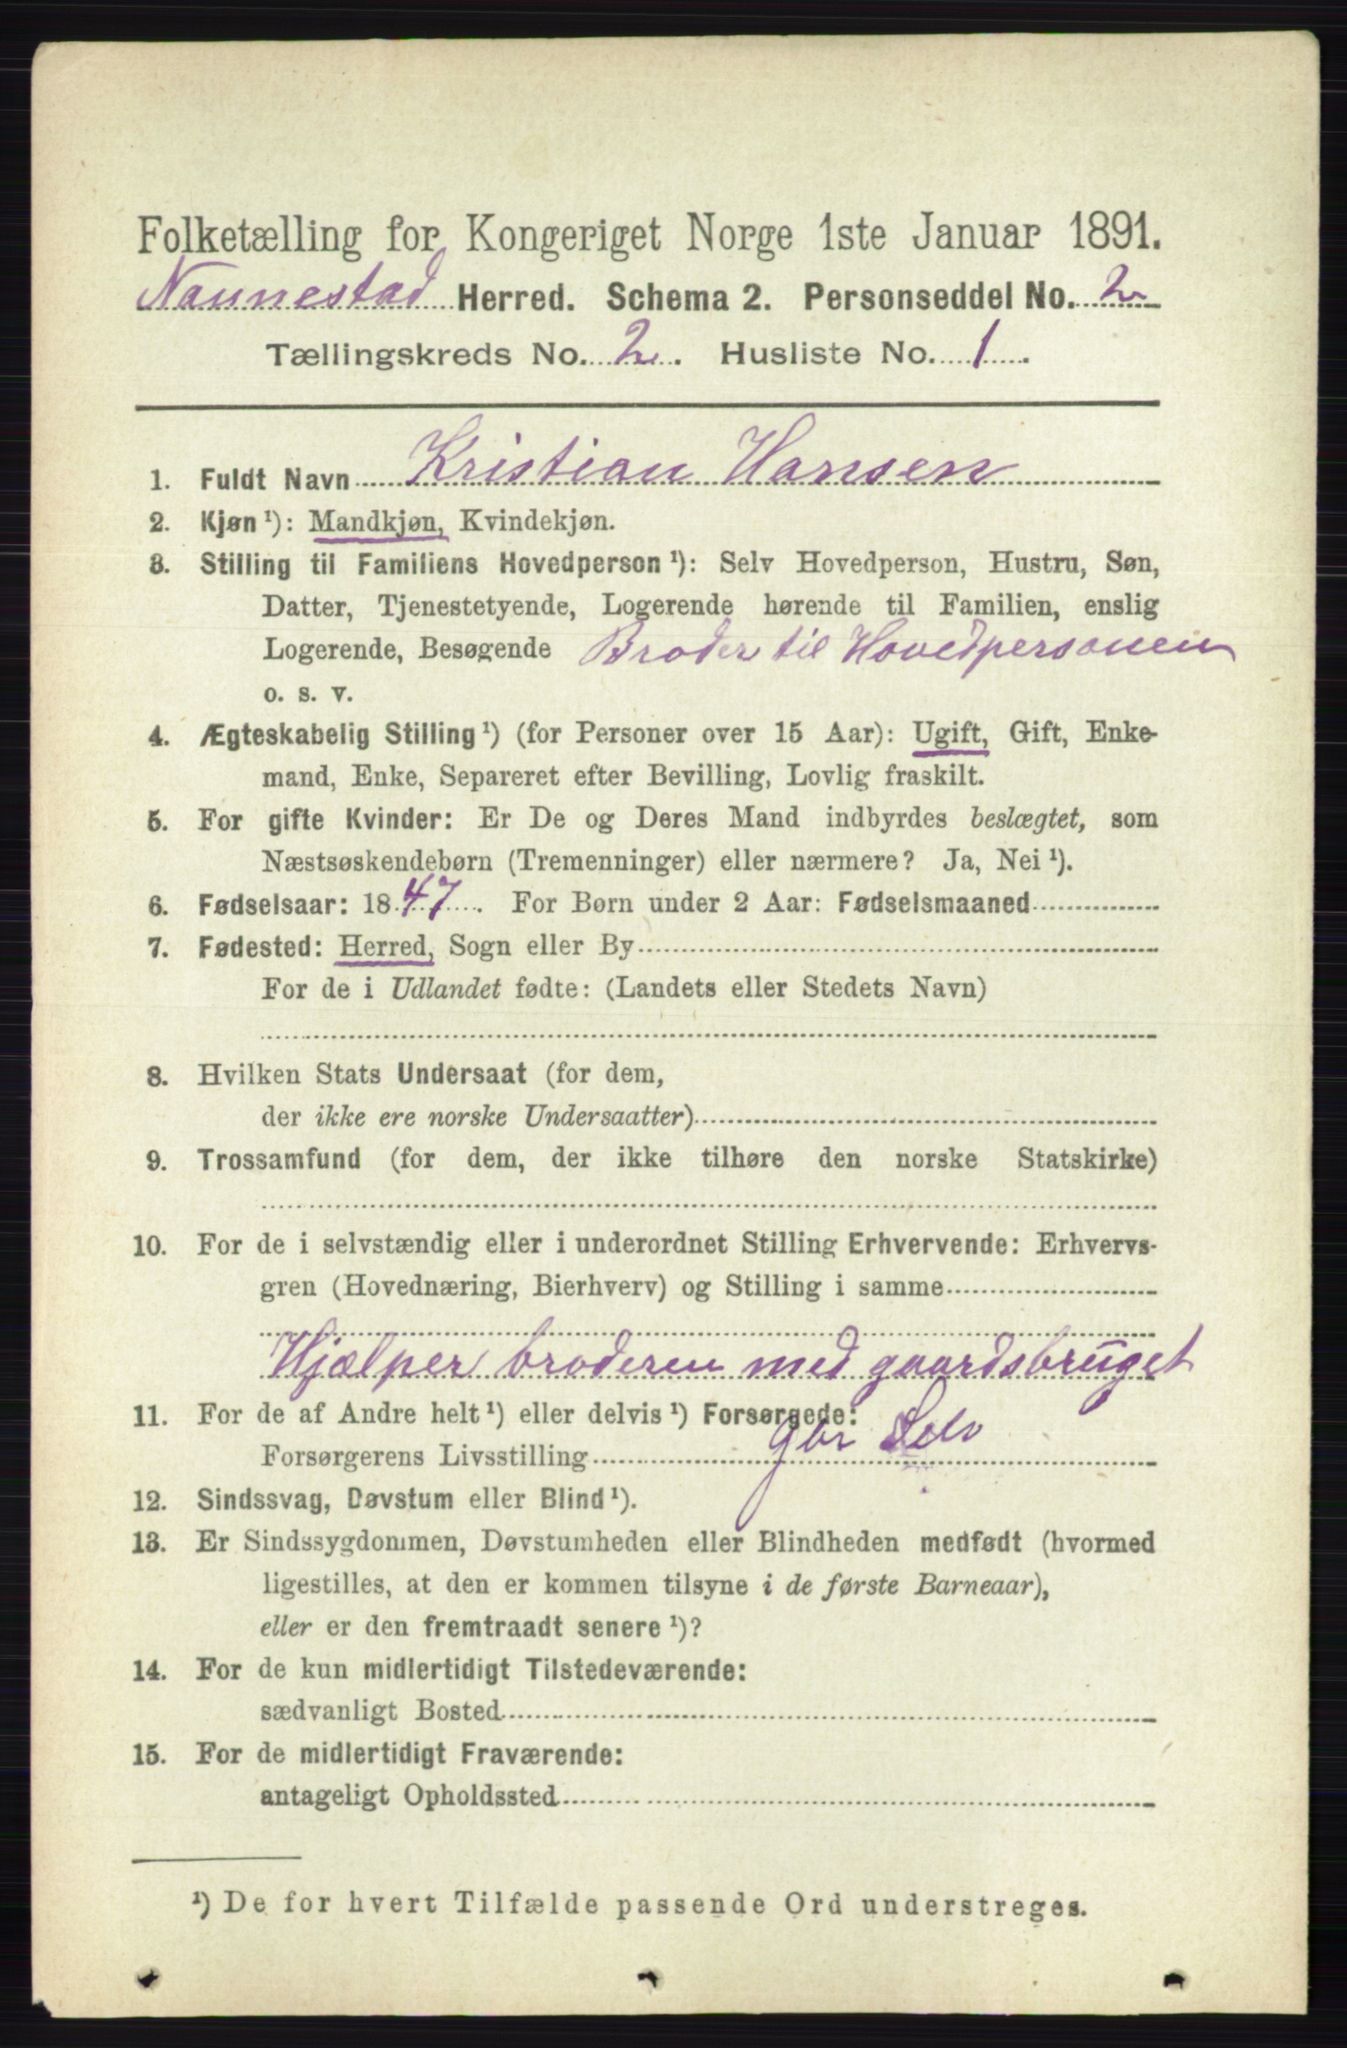 Folketælling for Kongeriget Norge 1ste Januar 1891.
Nannestad Herred. Schema 2. Personseddel No. 2
Tællingskreds No. 2. Husliste No. 1.
1. Fuldt Navn Kristian Hansen
2. Kjøn ¹): Mandkjøn, Kvindekjøn.
3. Stilling til Familiens Hovedperson ¹): Selv Hovedperson, Hustru, Søn,
Datter, Tjenestetyende, Logerende hørende til Familien, enslig
Logerende, Besøgende Broder til Hovedpersonen
o. s. v.
4. Ægteskabelig Stilling ¹) (for Personer over 15 Aar): Ugift, Gift, Enke-
mand, Enke, Separeret efter Bevilling, Lovlig fraskilt.
5. For gifte Kvinder: Er De og Deres Mand indbyrdes beslægtet, som
Næstsøskendebørn (Tremenninger) eller nærmere? Ja, Nei ¹).
6. Fødselsaar: 1847. For Børn under 2 Aar: Fødselsmaaned
7. Fødested: Herred, Sogn eller By
For de i Udlandet fødte: (Landets eller Stedets Navn)
8. Hvilken Stats Undersaat (for dem,
der ikke ere norske Undersaatter)
9. Trossamfund (for dem, der ikke tilhøre den norske Statskirke)
10. For de i selvstændig eller i underordnet Stilling Erhvervende: Erhvervs-
gren (Hovednæring, Bierhverv) og Stilling i samme
Hjælper broderen med gaardsbruget
11. For de af Andre helt ¹) eller delvis ¹) Forsørgede:
Forsørgerens Livsstilling Gbr Selv
12. Sindssvag, Døvstum eller Blind ¹).
13. Er Sindssygdommen, Døvstumheden eller Blindheden medfødt (hvormed
ligestilles, at den er kommen tilsyne i de første Barneaar),
eller er den fremtraadt senere ¹)?
14. For de kun midlertidigt Tilstedeværende:
sædvanligt Bosted
15. For de midlertidigt Fraværende:
antageligt Opholdssted
¹) De for hvert Tilfælde passende Ord understreges.